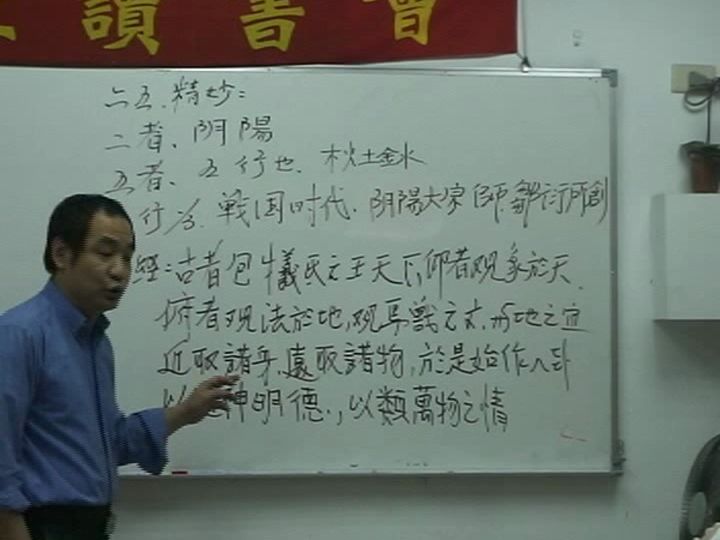 讀書會
二五.精妙:
二者、阴陽
五者、五行也. 木火土金水
行为.戦国时代.阴陽大宗师.鄒衍所創
經:古者包犧氏之王天下,仰者观象於天.
俯者观法於地,观鸟獸之文.与地之宜
近取諸身.遠取諸物,於是始作八卦
以 神明德.,以類萬物之情